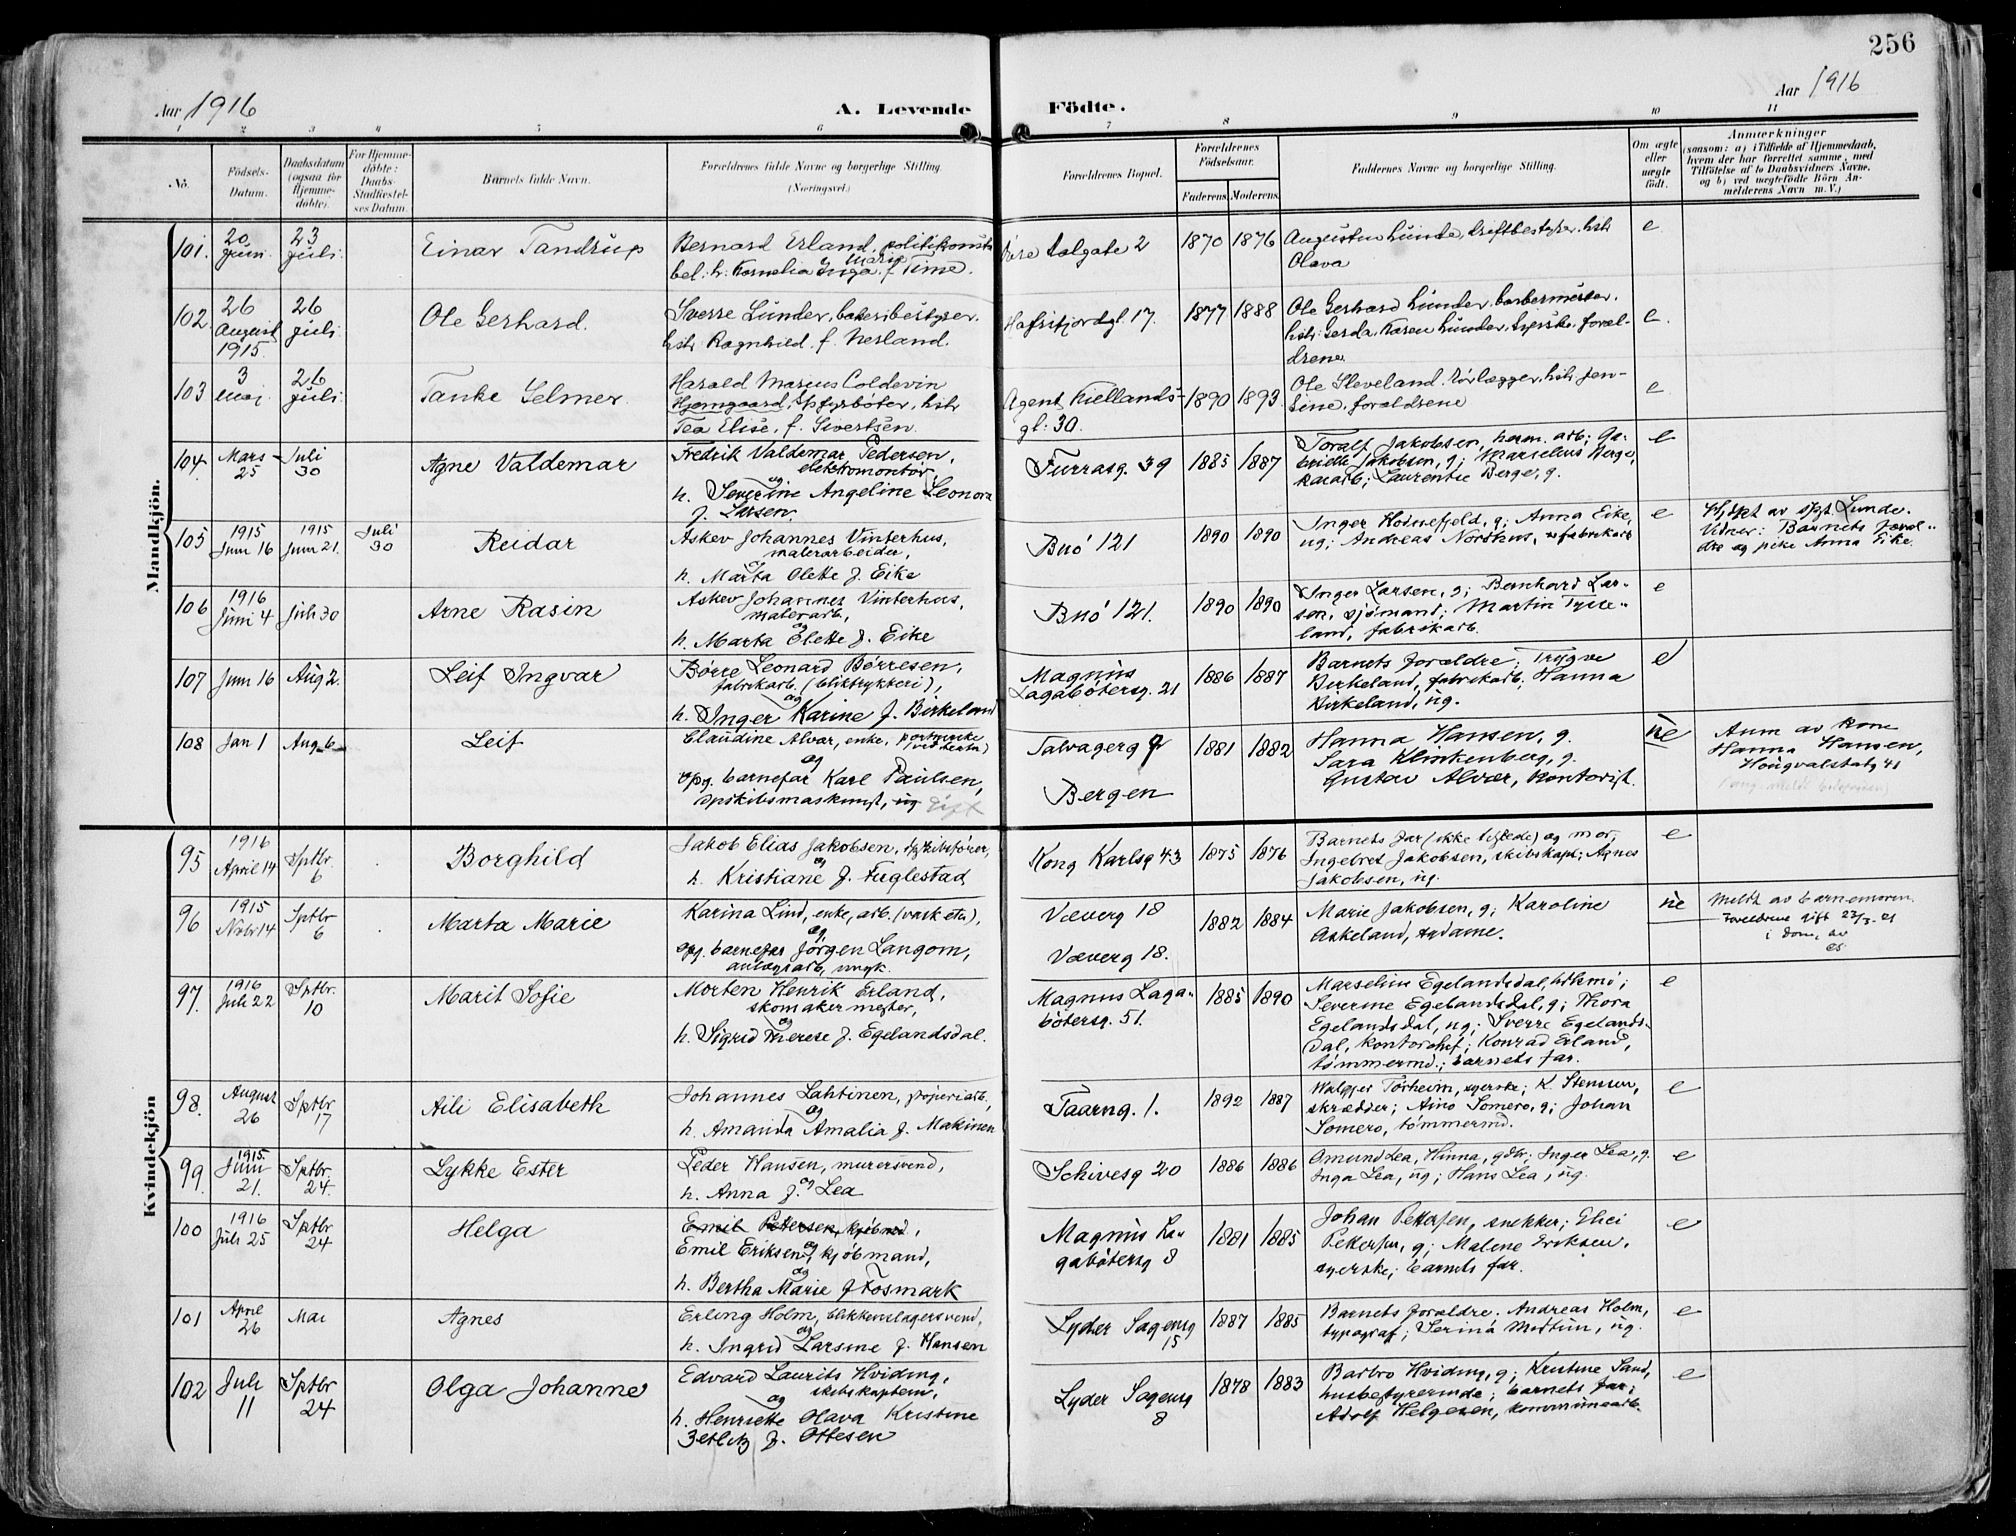 256
Aar 1916
A. Levende Födte.
Aar 1916
1 2 3 4 5 6 7 8 9 10 11
No.
Födsels-
Datum.
Daabsdatum
(ogsaa for
Hjemme-
döbte).
For Hjemme-
döbte:
Daabs-
Stadfæstel-
ses Datum.
Barnets fulde Navn.
Forældrenes fulde Navne og borgerlige Stilling.
(Næringsvei.)
Forældrenes Bopæl.
Forældrenes
Födselsaar.
Faderens. Moderens.
Faddernes Navne og borgerlige Stilling.
Om ægte
eller
uægte
födt.
Anmærkninger
(saasom: a) i Tilfælde af Hjemmedaab,
hvem der har forrettet samme, med
Tilföielse af to Daabsvidners Navne,
og b) ved uægtefödte Börn An-
melderens Navn m. V.)
Mandkjön.
101. 20 juni 23 juli Einar Tandrup
Bernard Erland, politikonsta-
bel. h. Kornelia Inga Marie f. Time.
Øvre Dalgate 2 1870 1876
Augustus Lunde, driftbestyrer, hstr
Olava
e
102 26 August 1915 26 juli Ole Gerhard.
Sverre Lunder, bakeribestyrer.
hstr Ragnhild f. Nesland.
Hafrsfjordgt. 17. 1877 1888
Ole Gerhard Lunder, barbermester.
hstr Gerda, Karen Lunder, syerske, foræl-
drene.
e.
103 3 mai 26 juli Tanke Gelmer.
Harald Marcus Coldevin
Hjemgaard, Spfyrbøter, hstr
Tea Elise, f. Sivertsen.
Agent Kiellands-
gt. 30. 1890 1893
Ole Sleveland. rørlægger, hstr Jen-
sine, forældrene
e
104. Mars 25 Juli 30 Agne Valdemar
Fredrik Valdemar Pedersen,
elektromontør,
og
h. Severine Angeline Leonora
f. Larsen.
Furrasg. 39 1885 1887
Toralf Jakobsen, herm. arb; Ga-
brielle Jakobsen, g; Marselius Berge,
kaiarb; Laurentse Berge, g.
e
105 1915 Juni 16 1915 Juni 21. Juli 30 Reidar
Askev Johannes Vinterhus,
malerarbeider,
og
h. Marta Olette f. Eike
Buø 121 1890 1890
Inger Hodnefjeld, g; Anna Eike,
ug; Andreas Nordhus, fabrikarb
e
Hjdpt av spgt Lunde.
Vidner: Barnets foræl-
dre og pike Anna Eike.
106 1916 Juni 4 Juli 30 Arne Rasin
Askev Johannes Vinterhus,
malerarb,
og
h. Marta Olette f. Eike
Buø 121. 1890 1890
Inger Larsen, g; Bernhard Lar-
sen, sjømand; Martin Tysse-
land, fabrikarb.
e
107 Juni 16 Aug 2. Leif Ingvar
Børre Leonard Børresen,
fabrikarb. (bliktrykkeri),
og
h. Inger Karine f. Birkeland
Magnus
Lagabøtersg. 21 1886 1887
Barnets forældre; Trygve
Birkeland, fabrikarb; Hanna
Birkeland, ug.
e
108 Jan 1 Aug 6 Leif
Claudine Alvær, enke,
og
opg. barnefar Karl Paulsen,
spskibsmaskinist, ug gift
Talvagerg 7
Bergen 1881 1882
Hanna Hansen, g.
Sara Klinkenberg, g.
Gustav Alvær, kontorist.
ue
Anm av kone
Hanna Hansen,
Haugvalstatg 41
Kvindekjön
95 1916 April 14 Sptbr. 6 Borghild
Jakob Elias Jakobsen, spskibsfører,
og
h. Kristiane f. Fuglestad
Kong Karlsg 43 1875 1876
Barnets far (ikke tilstede) og mor,
Ingebret Jakobsen, skibskapt; Agnes
Jakobsen, ug.
e
96 1915 Novbr 14 Sptbr 6 Marta Marie
Karina Lind, enke, arb. (vask etc),
og
opg. barnefar Jörgen Langom,
anlægsarb, ungk.
Væverg 18
Væverg 18. 1882 1884
Marie Jakobsen, g; Karoline
Askeland, sydame.
ue
Meldt av barnemoren.
Foreldrene gift 22/3. 21
97. 1916 Juli 22 Sptbr. 10 Marit Sofie
Morten Henrik Erland,
skomakermester,
og
h. Sigrid Therese f. Egelandsdal.
Magnus Laga-
bøtersg. 51. 1885 1890
Marselius Egelandsdal,
Severine Egelandsdal, g; Thora
Egelandsdal, ug; Sverre Egelands-
dal, kontorchef; Konrad Erland,
tømmermd.; barnets far.
e
98. August 26 Sptbr 17 Aili Elisabeth
Johannes Lahtinen, papiriarb,
og
h. Amanda Amalia f. Makinen
Taarng. 1. 1892 1887
Walgjer Torheim, syerske; K. Stensen,
skrædder; Aino Somero, g; Johan
Somero, tømmermd.
e
99. 1915. Juni 21. Sptbr. 24. Lykke Ester
Peder Hansen, murersvend,
og
h. Anna f. Lea
Schivesg 20 1886 1886
Omund Lea, Hinna, gdbr; Inger Lea, g.
Inga Lea, ug; Hans Lea, ug.
e
100 1916 Juli 25 Sptbr 24 Helga
Emil Pettersen, kjøbmd,
Emil Eriksen, kjøbmand,
og
h. Bertha Marie f Fosmark
Magnus La-
gabøtersg 8 1881 1885
Johan Pettersen, snekker; Elici
Pettersen, g; Malene Eriksen,
syerske; barnets far.
e
101 April 26 Mai Agnes
Erling Holm, blikkenslagersvend,
og
h. Ingrid Larsine f. Hansen
Lyder Sagensg
15 1887 1885
Barnets forældre. Andreas Holm,
typograf; Serina Medtun, ug.
e
102 Juli 11 Sptbr 24 Olga Johanne
Edvard Laurits Hviding,
skibskaptein,
og
h. Henriette Olava Kristine
Zetlitz f. Ottesen
Lyder Sagensg
8 1878 1883
Barbro Hviding, g; Kristine Sand,
husbestyrerinde; barnets far;
Adolf Helgesen, kommunearb.
e